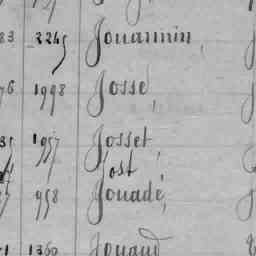 83 2245 Jouannin,
76 1998 Josse
35 1957 Josset,
Jost
958 Jouadé,
1 1360 Jouaud